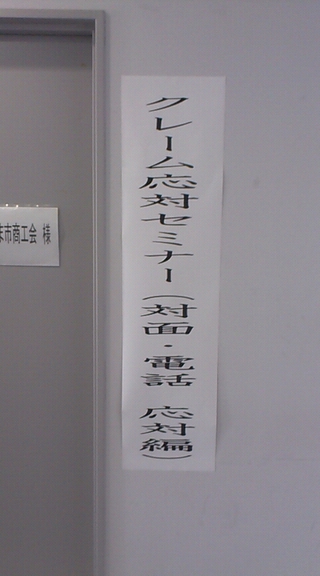 クレーム応対セミナー(対面・電話 応対編)
市商工会 様